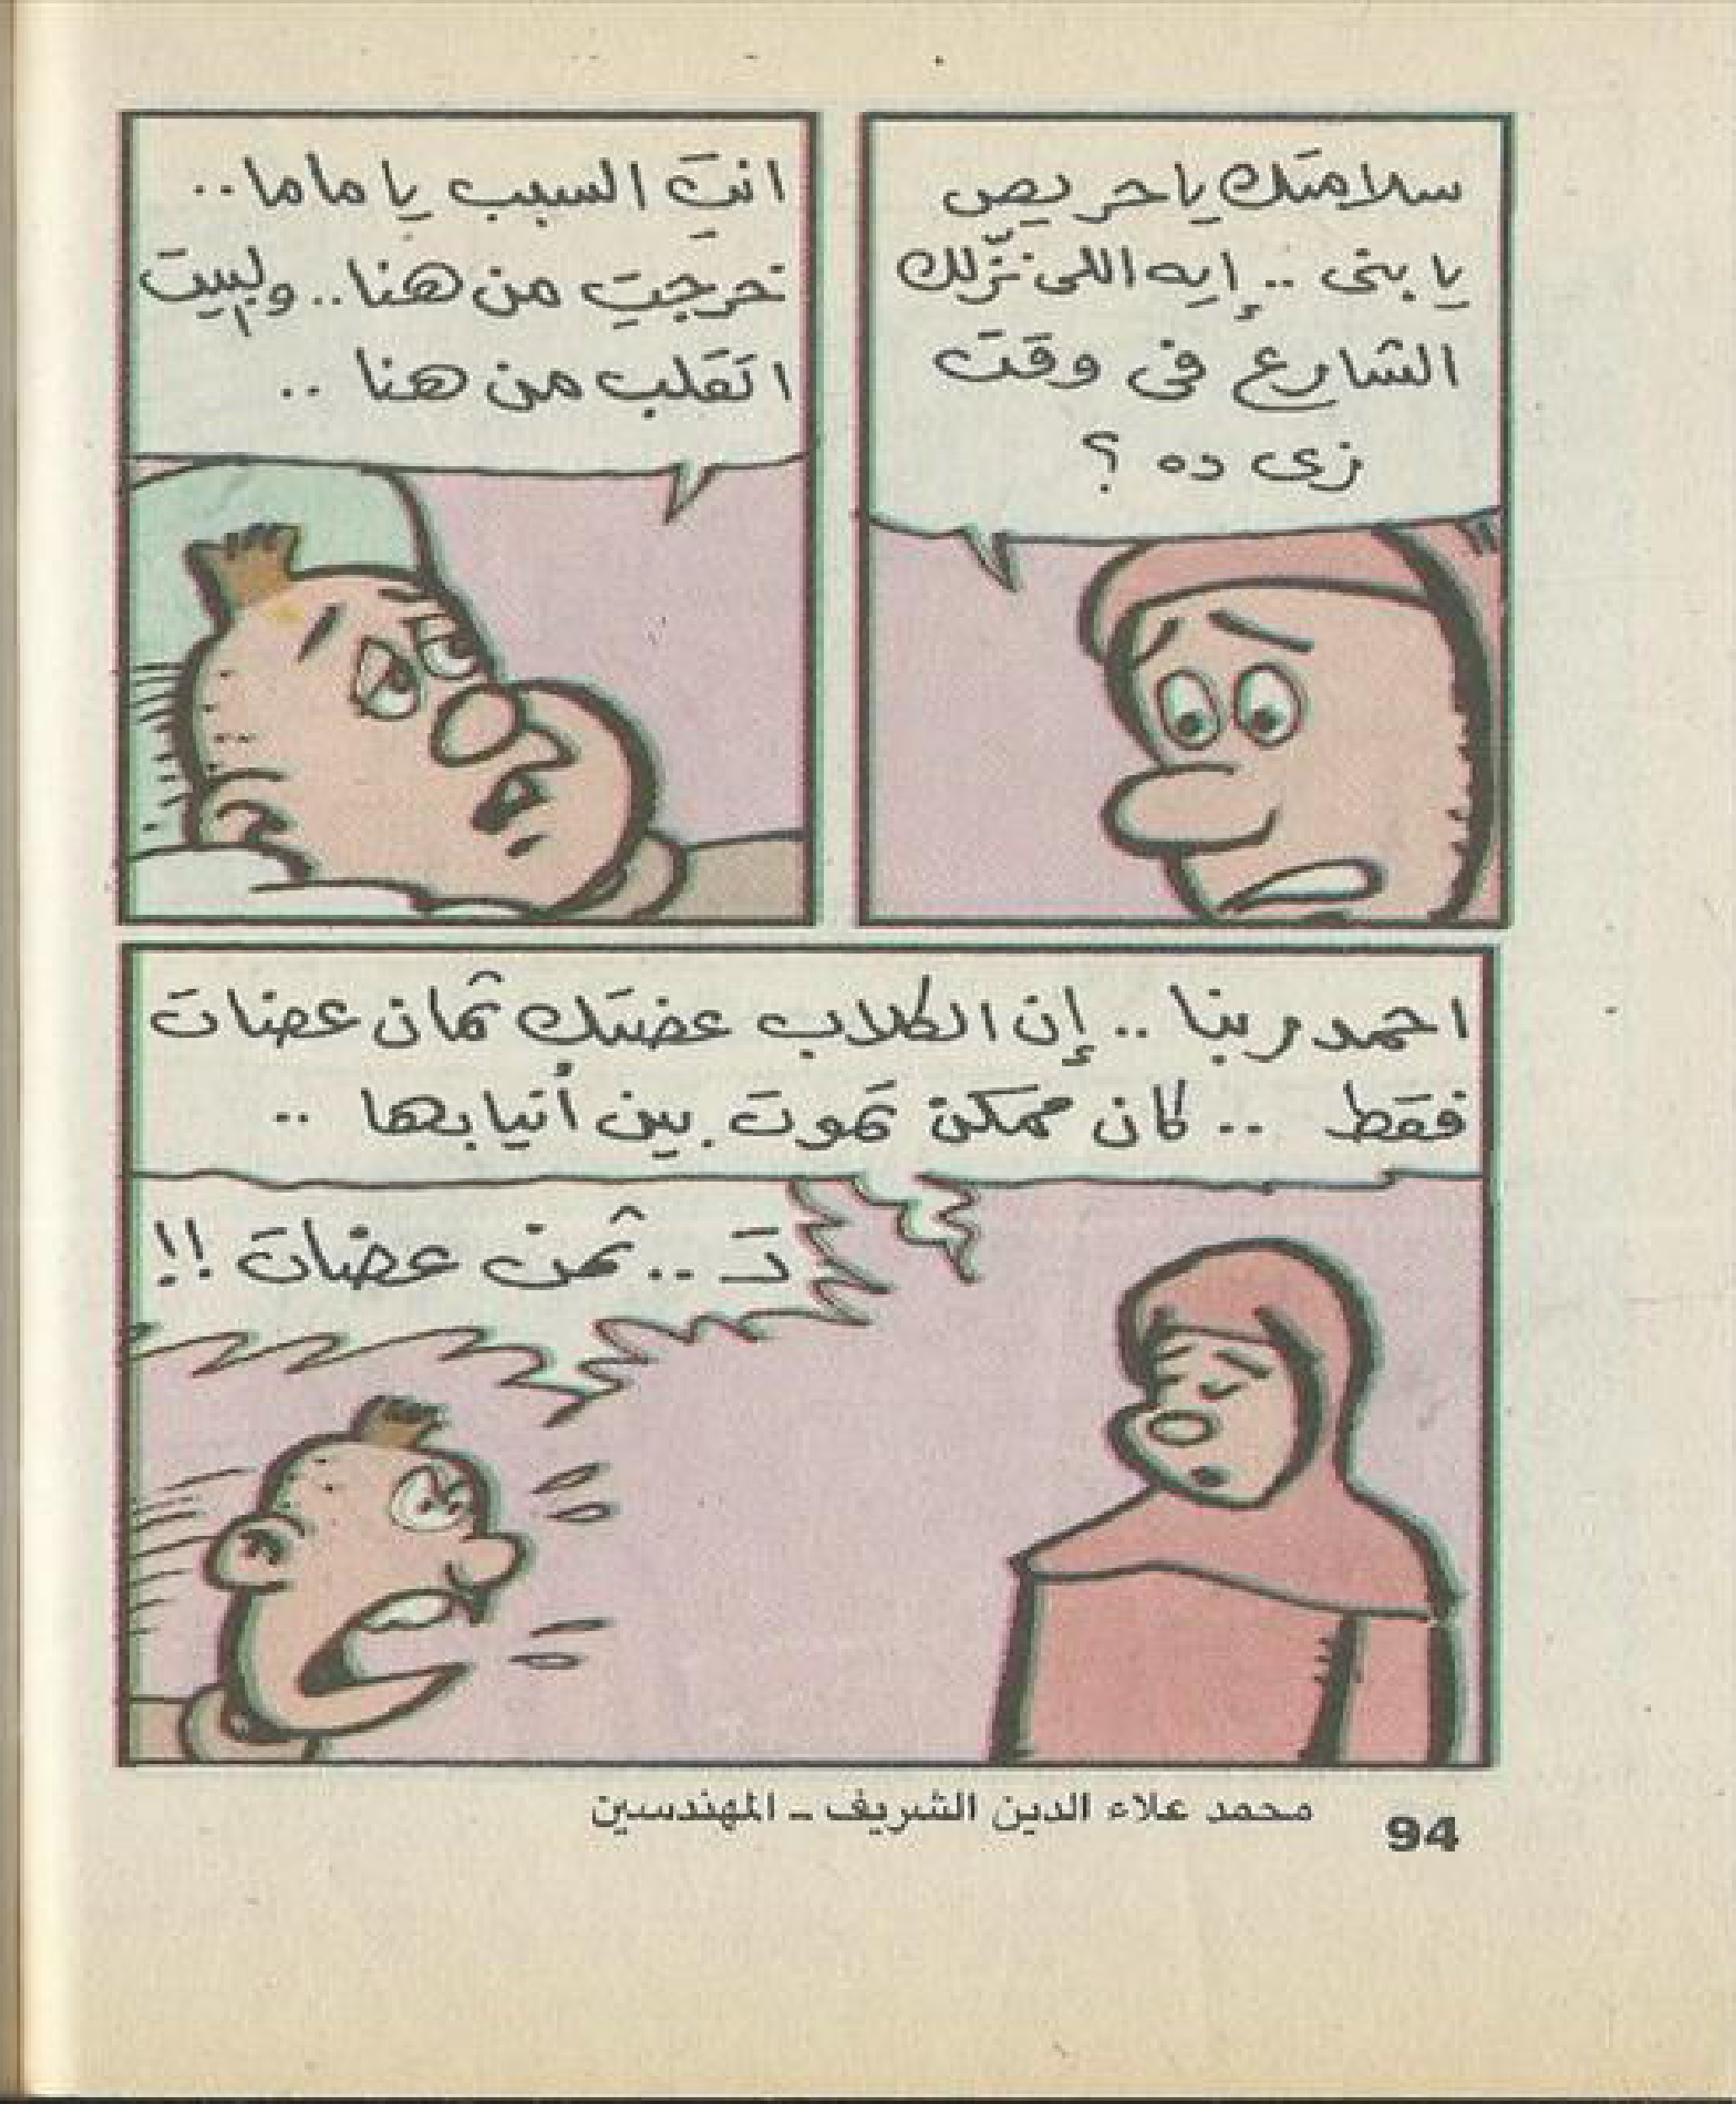 سلامتك يا حريص
يا بنى .. إيه اللى نزّلك
الشارع فى وقت
زى ده ؟
انتِ السبب يا ماما ..
خرجتِ من هنا .. والبيت
اتقلب من هنا ..
احمد ربنا .. إن الكلاب عضتك ثمان عضات
فقط .. كان ممكن تموت بين أنيابها ..
تـ .. ثمن عضات !!
محمد علاء الدين الشريف - المهندسين
94